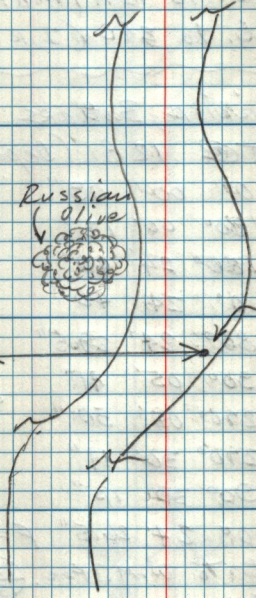 Russian
Olive